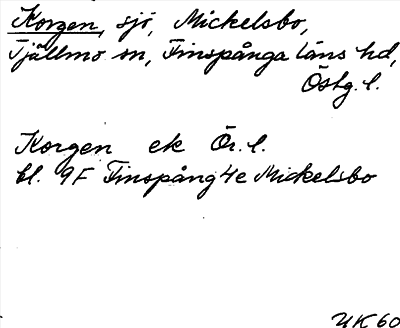 Korgen, sjö, Mickelsbo,
Tjällmo sn, Finspånga läns hd,
Östg. l.
Korgen ek Ör. l.
bl. 9F Finspång 4e Mickelsbo
UK 60